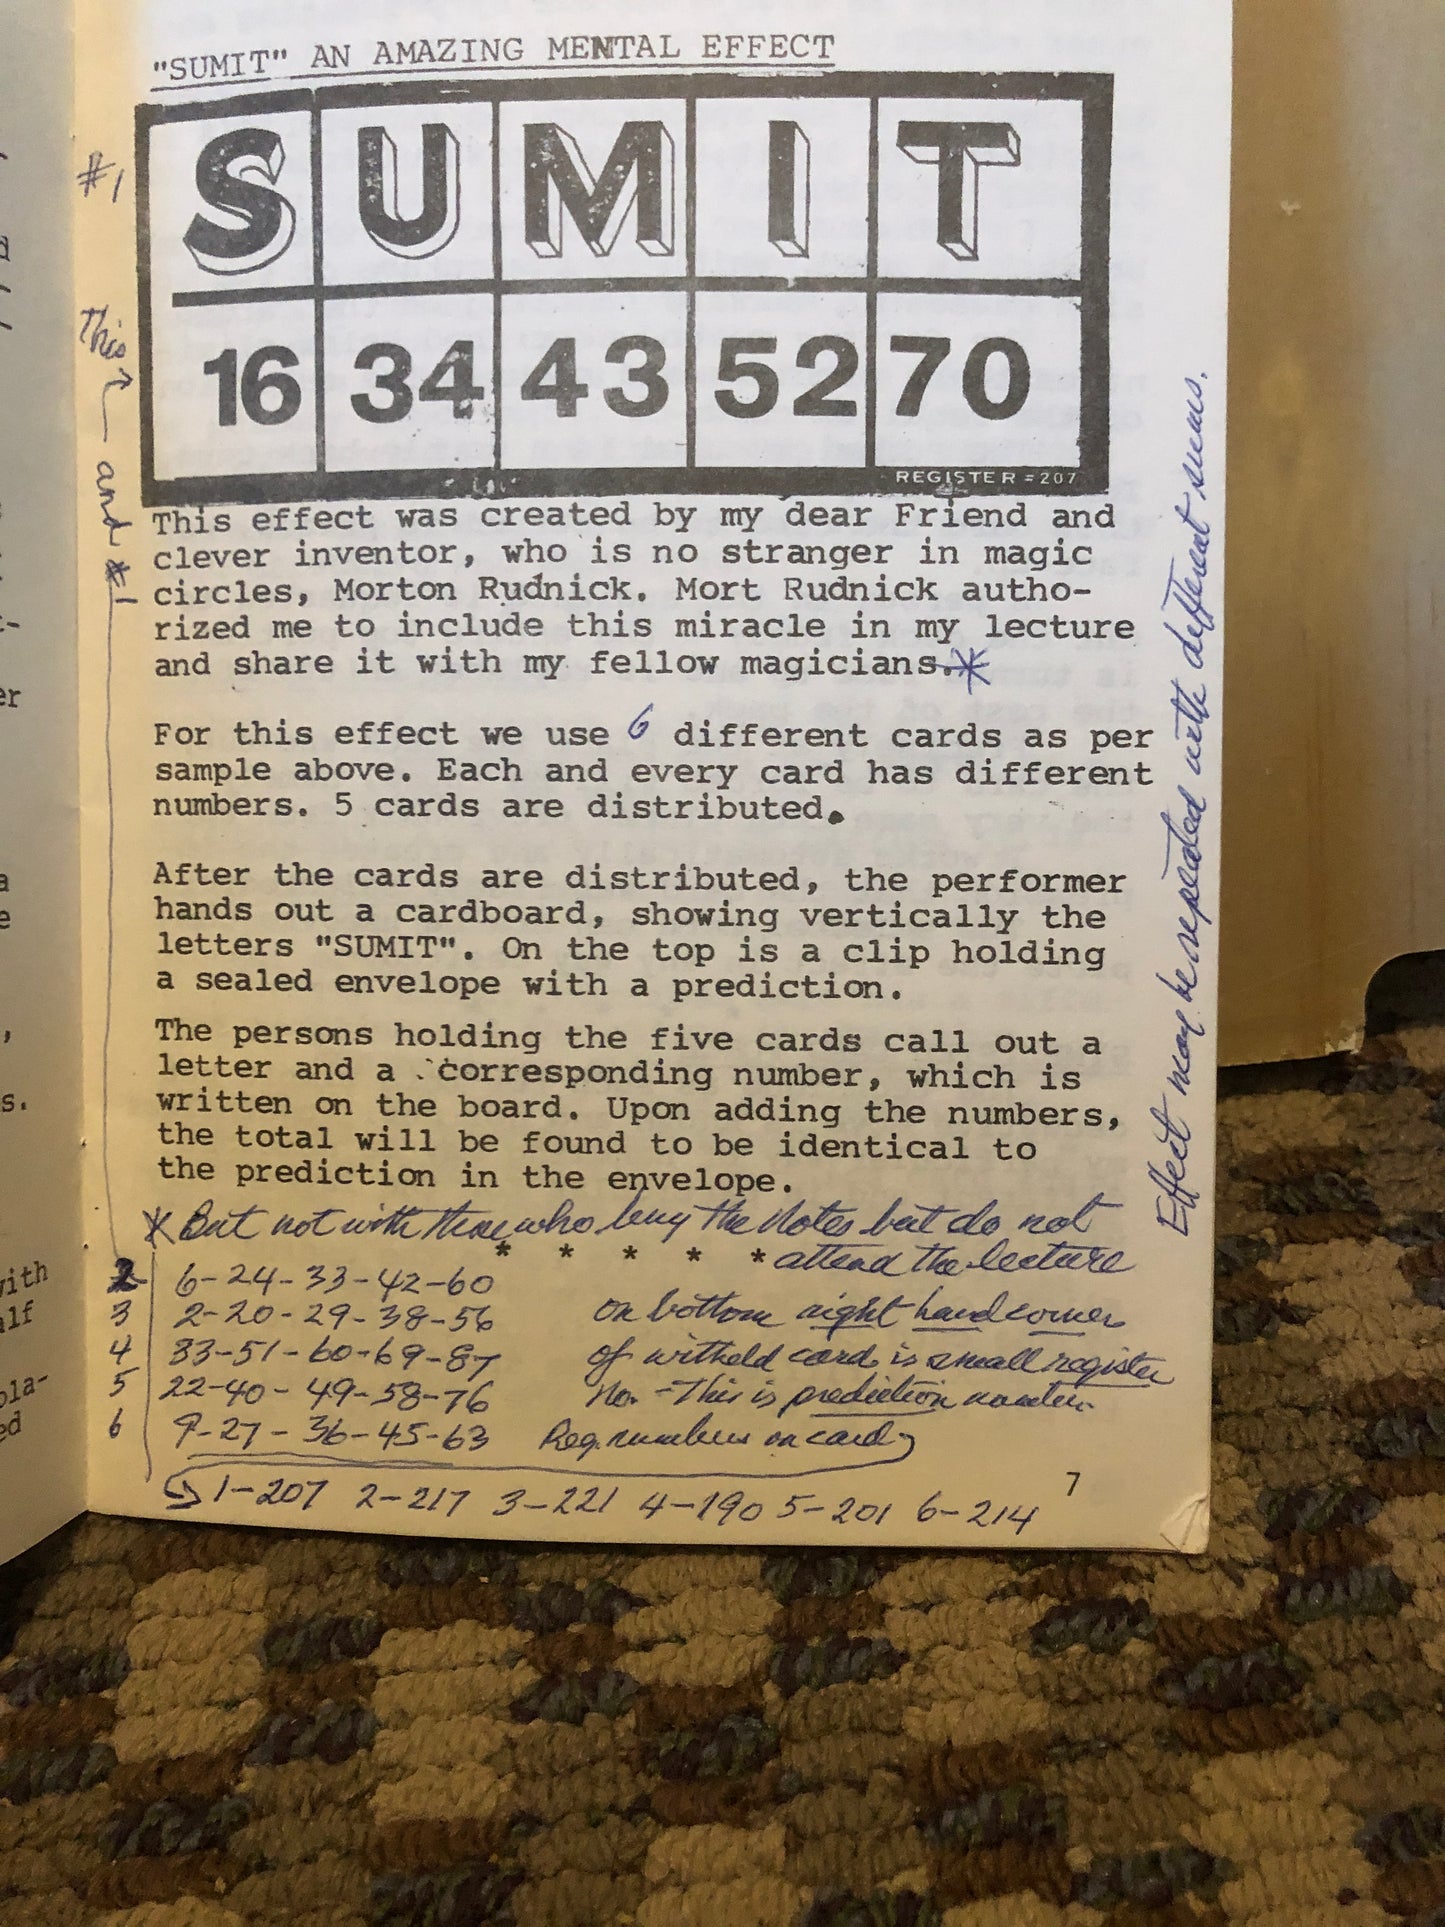 "SUMIT" AN AMAZING MENTAL EFFECT
#1
S U M I T
This
16 34 43 52 70
REGISTER = 207
and #1
This effect was created by my dear Friend and
clever inventor, who is no stranger in magic
circles, Morton Rudnick. Mort Rudnick autho-
rized me to include this miracle in my lecture
and share it with my fellow magicians.*
For this effect we use 6 different cards as per
sample above. Each and every card has different
numbers. 5 cards are distributed.
After the cards are distributed, the performer
hands out a cardboard, showing vertically the
letters "SUMIT". On the top is a clip holding
a sealed envelope with a prediction.
The persons holding the five cards call out a
letter and a corresponding number, which is
written on the board. Upon adding the numbers,
the total will be found to be identical to
the prediction in the envelope.
Effect may be repeated with different sums.
* But not with those who buy the Notes but do not
* * * * * attend the lecture
2 6-24-33-42-60
3 2-20-29-38-56 on bottom right hand corner
4 33-51-60-69-87 of witheld card is small register
5 22-40-49-58-76 no. - This is prediction number.
6 9-27-36-45-63 Reg. numbers on card
1-207 2-217 3-221 4-190 5-201 6-214
7
er
a
e
s.
with
alf
ola-
ed